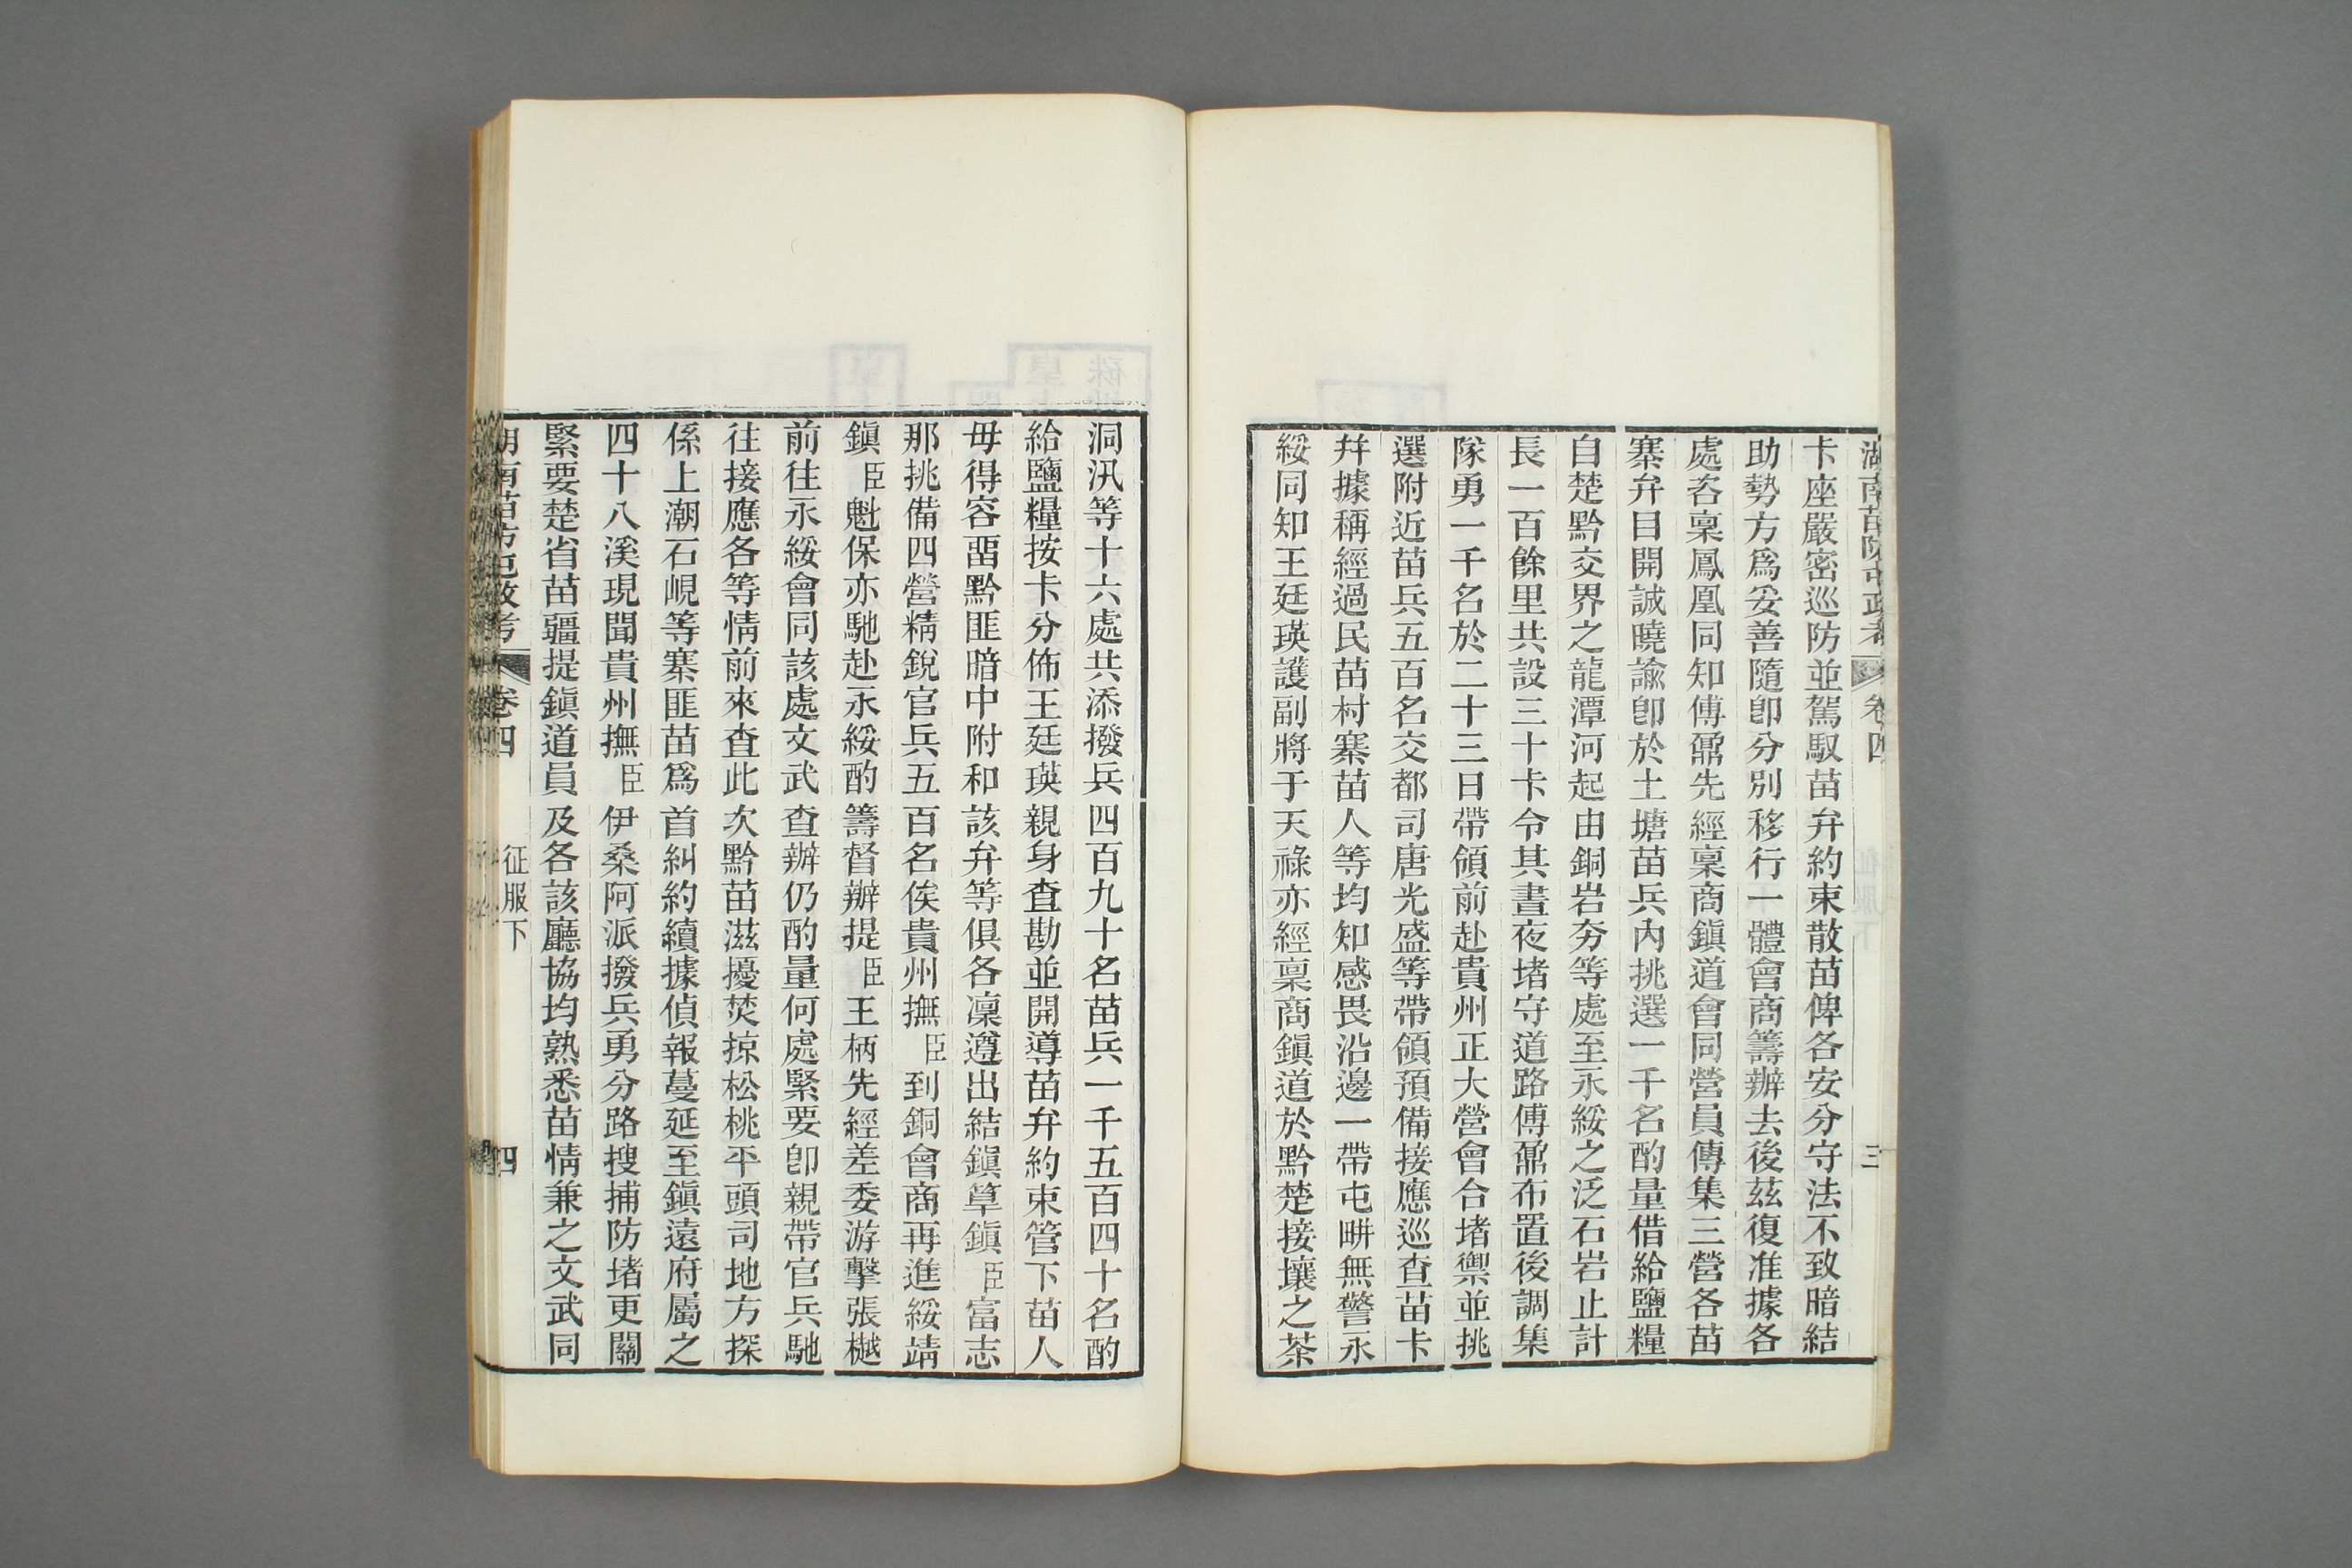 湖南苗防屯政考 卷四 三
卡座嚴密巡防並駕馭苗弁約束散苗俾各安分守法不致暗結
助勢方爲妥善隨卽分別移行一體會商籌辦去後茲復准據各
處咨稟鳳凰同知傅鼐先經稟商鎭道會同營員傳集三營各苗
寨弁目開誠曉諭卽於土塘苗兵內挑選一千名酌量借給鹽糧
自楚黔交界之龍潭河起由銅岩夯等處至永綏之泛石岩止計
長一百餘里共設三十卡令其晝夜堵守道路傅鼐布置後調集
隊勇一千名於二十三日帶領前赴貴州正大營會合堵禦並挑
選附近苗兵五百名交都司唐光盛等帶領預備接應巡查苗卡
幷據稱經過民苗村寨苗人等均知感畏沿邊一帶屯畊無警永
綏同知王廷瑛護副將于天祿亦經稟商鎭道於黔楚接壤之茶
洞汛等十六處共添撥兵四百九十名苗兵一千五百四十名酌
給鹽糧按卡分佈王廷瑛親身查勘並開導苗弁約束管下苗人
毋得容畱黔匪暗中附和該弁等俱各凜遵出結鎭筸鎭臣富志
那挑備四營精銳官兵五百名俟貴州撫臣到銅會商再進綏靖
鎭臣魁保亦馳赴永綏酌籌督辦提臣王柄先經差委游擊張樾
前往永綏會同該處文武查辦仍酌量何處緊要卽親帶官兵馳
往接應各等情前來查此次黔苗滋擾焚掠松桃平頭司地方探
係上潮石峴等寨匪苗爲首糾約續據偵報蔓延至鎭遠府屬之
四十八溪現聞貴州撫臣伊桑阿派撥兵勇分路搜捕防堵更關
緊要楚省苗疆提鎭道員及各該廳協均熟悉苗情兼之文武同
湖南苗防屯政考 卷四 征服下 四